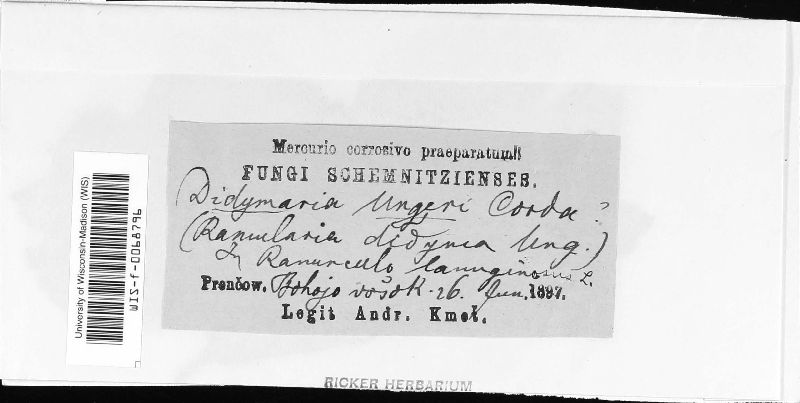 Mercurio corrosivo praeparatum!!
FUNGI SCHEMNITZIENSES.
Didymaria Ungeri Corda ?
(Ramularia didyma Ung.)
In Ranunculo lanuginosus L.
Prenčow. vošok. 26. Jun. 1897.
Legit Andr. Kmeť.
University of Wisconsin-Madison (WIS)
WIS-f-0068796
RICKER HERBARIUM